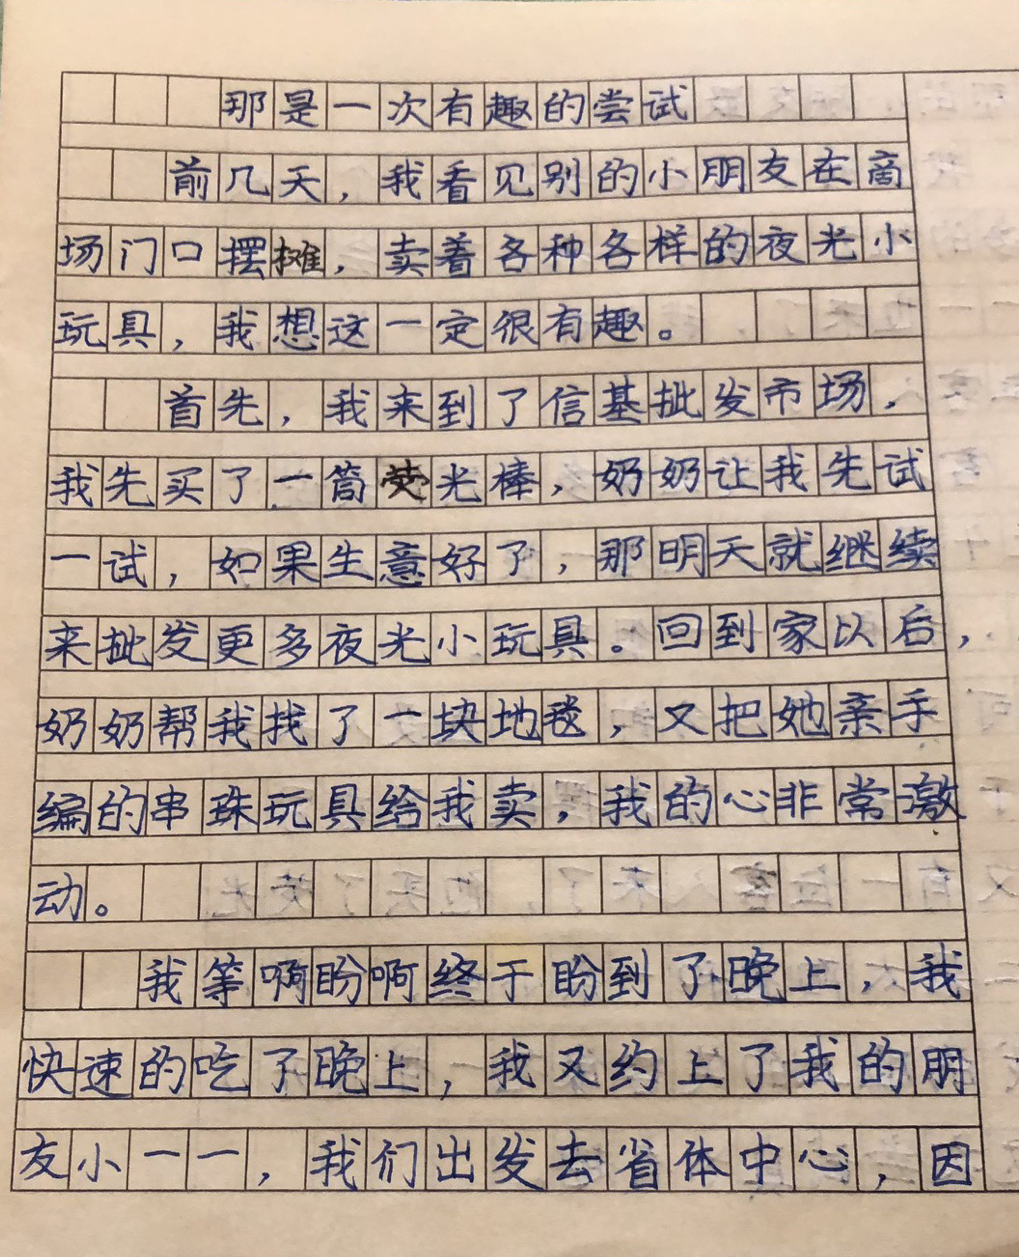 那是一次有趣的尝试
前几天，我看见别的小朋友在商
场门口摆摊，卖着各种各样的夜光小
玩具，我想这一定很有趣。
首先，我来到了信基批发市场，
我先买了一筒荧光棒，奶奶让我先试
一试，如果生意好了，那明天就继续
来批发更多夜光小玩具。回到家以后，
奶奶帮我找了一块地毯，又把她亲手
编的串珠玩具给我卖，我的心非常激
动。
我等啊盼啊终于盼到了晚上，我
快速的吃了晚上，我又约上了我的朋
友小一一，我们出发去省体中心，因